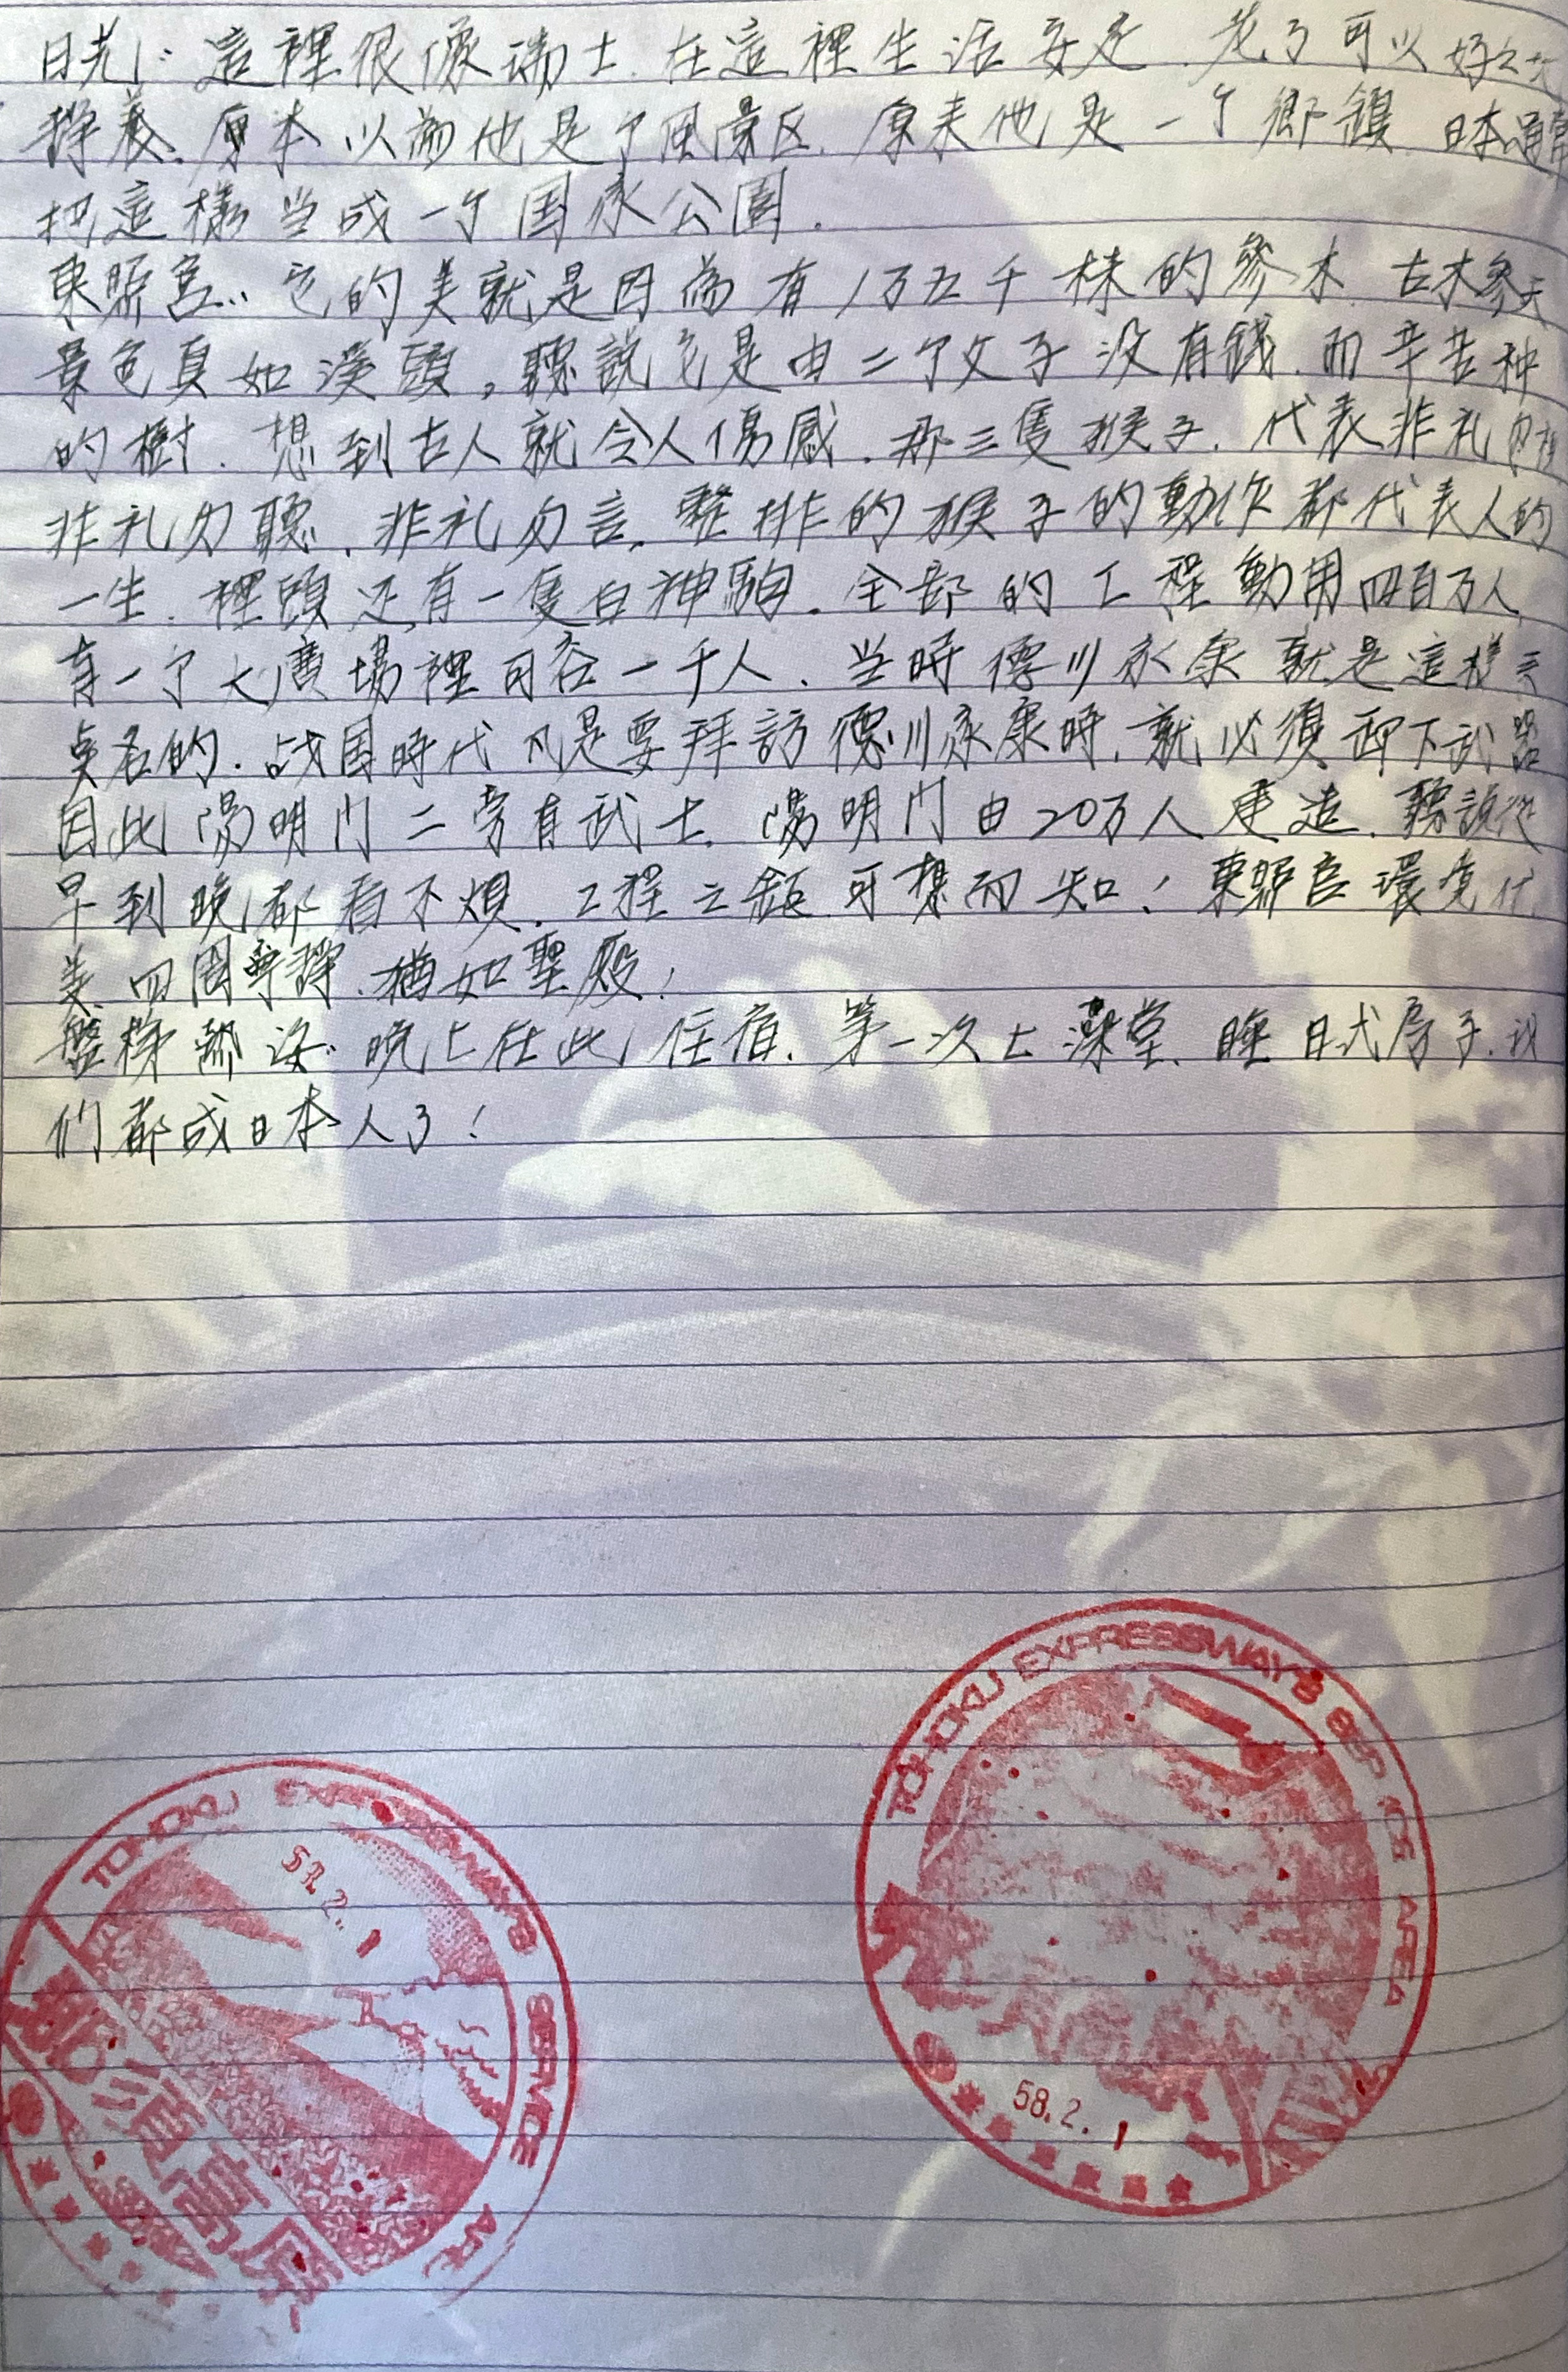 日光: 這裡很像瑞士. 在這裡生活安定. 老了可以好々
靜養. 原本以為他是个風景区. 原来他是一个鄉鎮. 日本通常
把這樣当成一个国家公園.
東照宮… 它的美就是因為有1万五千株的參木. 古木參天
景色真如溪頭, 聽說它是由二个父子没有錢. 而辛苦种
的樹. 想到古人就令人傷感. 那三隻猴子. 代表非礼勿視
非礼勿聽. 非礼勿言. 整排的猴子的動作都代表人的
一生. 裡頭还有一隻白神駒. 全部的工程動用四百万人
有一个大廣場裡可容一千人. 当時德川家康就是這樣
点名的. 战国時代凡是要拜訪德川家康時. 就必須卸下武器
因此陽明門二旁有武士. 陽明門由20万人建造. 聽說從
早到晚都看不煩. 工程之鉅可想而知! 東照宮環境优
美. 四周寧靜. 猶如聖殿!
盤梯熱海: 晚上在此住宿. 第一次上澡堂. 睡日式房子. 我
们都成日本人了!
TOHOKU EXPRESSWAYS SERVICE AREA
58.2.1
TOHOKU EXPRESSWAYS SERVICE AREA
58.2.1